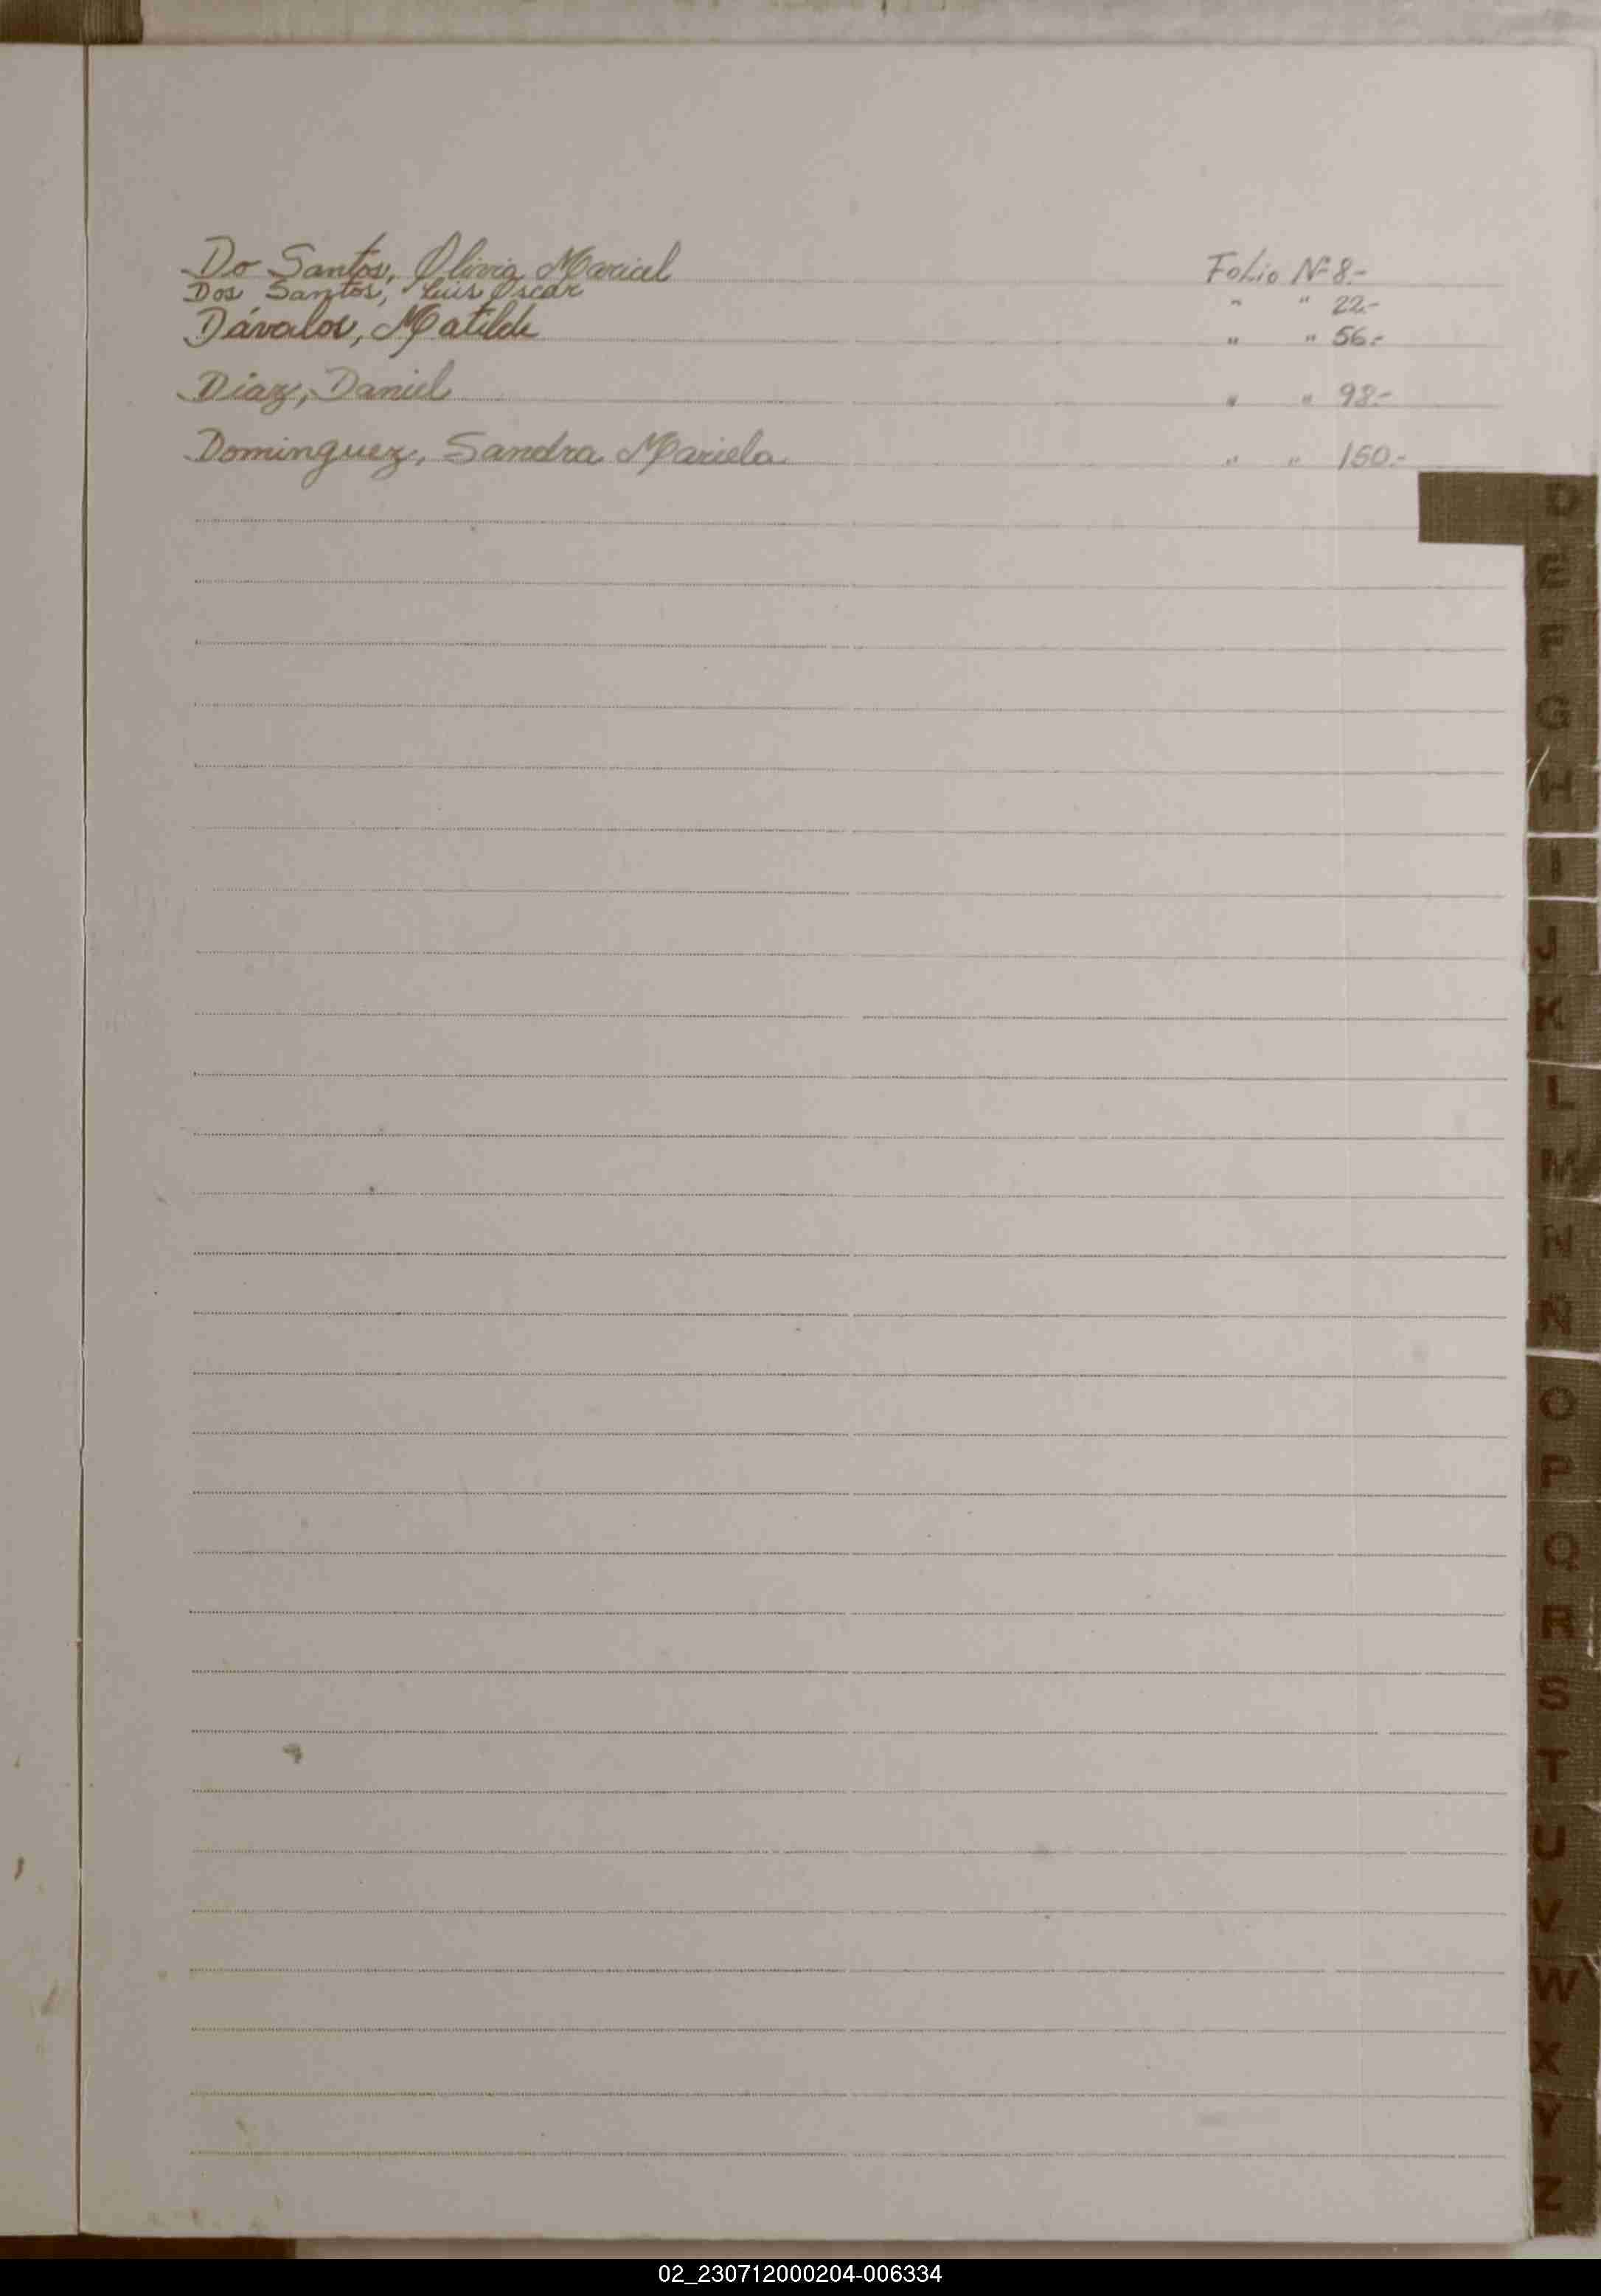 Do Santos, Olivia Maricel Folio Nº 8.-
Dos Santos, Luis Oscar " " 22.-
Dávalos, Matilde " " 56.-
Diaz, Daniel " " 98.-
Dominguez, Sandra Mariela " " 150.-
D
E
F
G
H
I
J
K
L
M
N
Ñ
O
P
Q
R
S
T
U
V
W
X
Y
Z
02_230712000204-006334